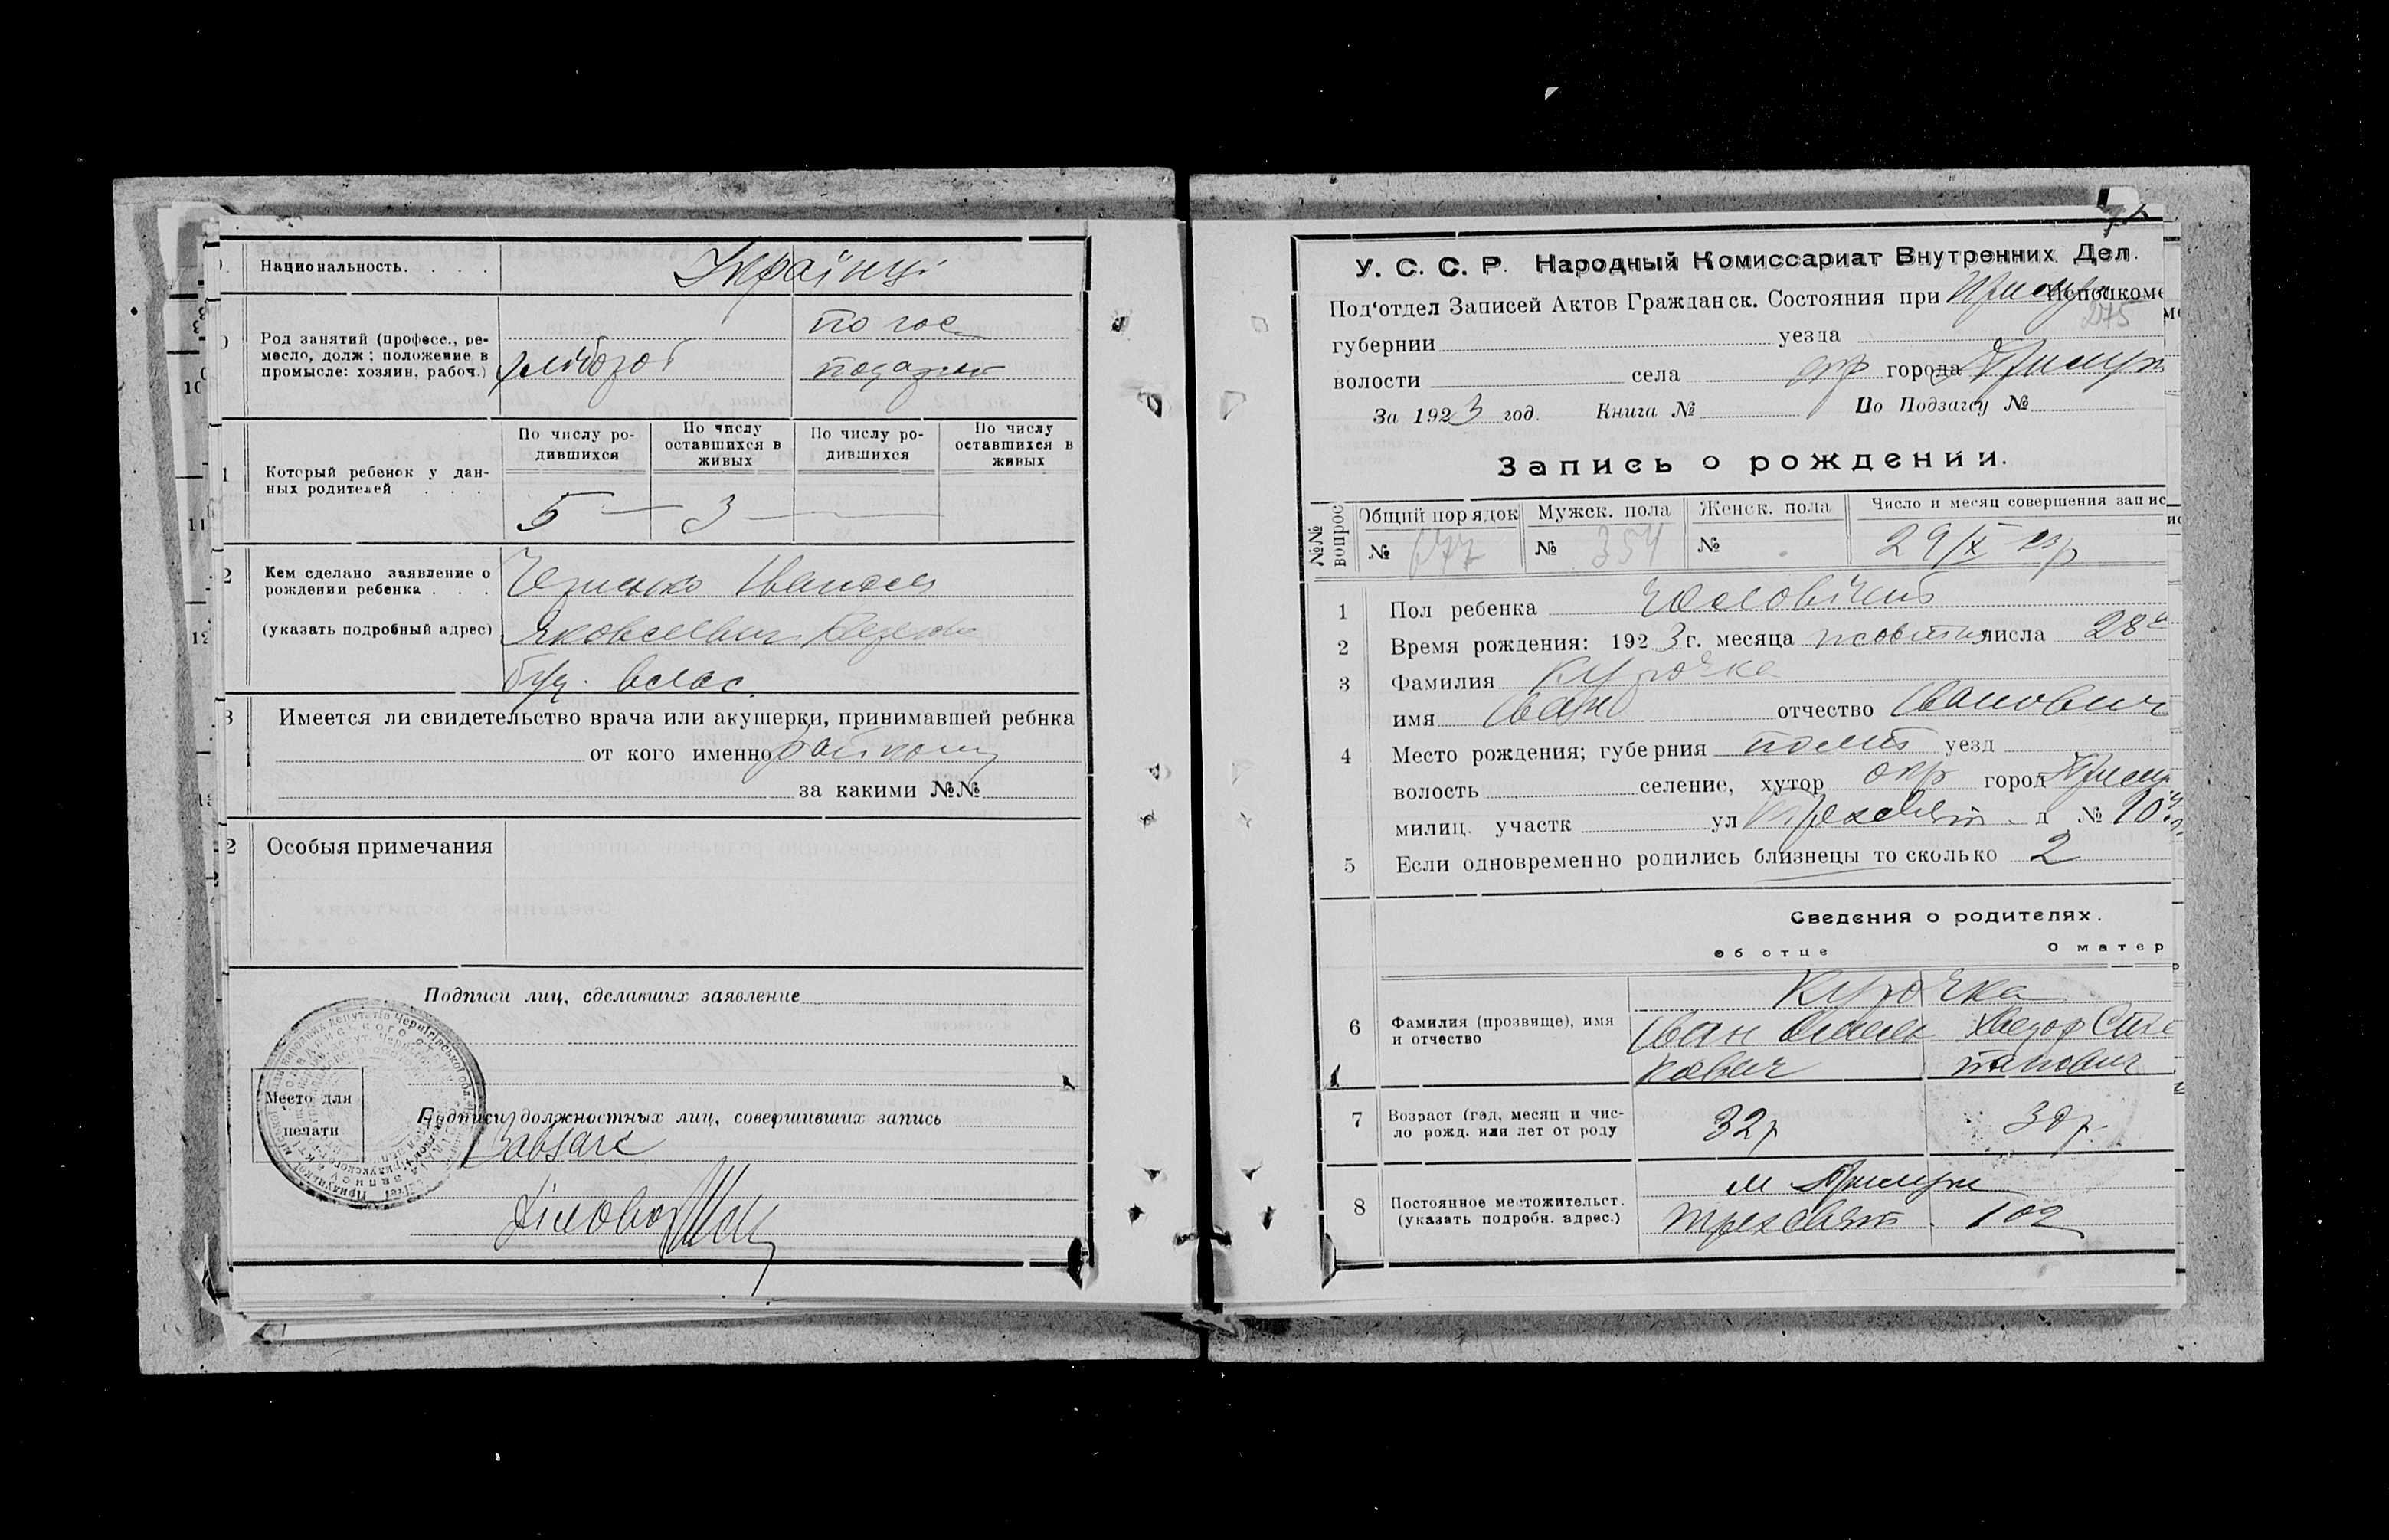 Национальность. . . .
Українці
Род занятий (професс., ре-
месло, долж; положение в
промысле: хозяин, рабоч.)
хлібороб
по гос
подарст
Который ребенок у дан-
ных родителей . . .
По числу ро-
дившихся
По числу
оставшихся в
живых
По числу ро-
дившихся
По числу
оставшихся в
живых
5 — 3 —
Кем сделано заявление о
рождении ребенка . . .
(указать подробный адрес)
буд. влас.
Имеется ли свидетельство врача или акушерки, принимавшей ребнка
от кого именно
за какими №№
Особыя примечания
Подписи лиц, сделавших заявление
Место для
печати
Подписи должностных лиц, совершивших запись
Завзагс
Діловод
У. С. С. Р. Народный Комиссариат Внутренних Дел.
Под'отдел Записей Актов Гражданск. Состояния при Прилуц Исполкоме
275
губернии уезда
волости села окр города Прилуки
За 1923 год. Книга № По Подзагсу №
Запись о рождении.
№№ вопрос
Общий порядок
Мужск. пола
Женск. пола
Число и месяц совершения запис
№ 677 № 354 № 29/X 23р
1 Пол ребенка Чоловічий
2 Время рождения: 1923 г. месяца жовтня числа 28
3 Фамилия Курочка
имя Іван отчество Іванович
4 Место рождения; губерния Полт уезд
волость селение, хутор окр город Прилуки
милиц. участк ул Трехсвят. д № 102
5 Если одновременно родились близнецы то сколько 2
Сведения о родителях.
об отце о матер
Курочка
6 Фамилия (прозвище), имя
и отчество
Іван
7 Возраст (год, месяц и чис-
ло рожд. или лет от роду
32р 30р.
8 Постоянное местожительст.
(указать подробн. адрес.)
м Прилуки
Трехсвят. 102